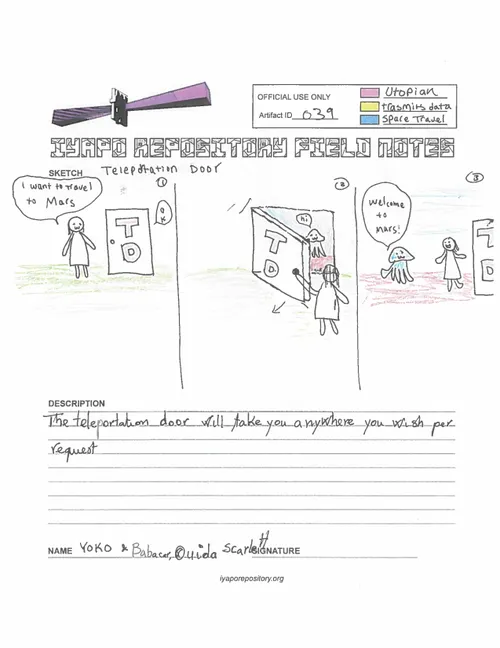 OFFICIAL USE ONLY
Artifact ID 039
Utopian
trasmits data
Space Travel
IYAPO REPOSITORY FIELD NOTES
SKETCH Teleportation Door
I want to travel
to Mars
①
TD
OK
②
hi
TD
③
Welcome
to
Mars!
T
D
DESCRIPTION
The teleportation door will take you anywhere you wish per
request
NAME YOKO & Babacar, Ouida Scarlett SIGNATURE
iyaporepository.org